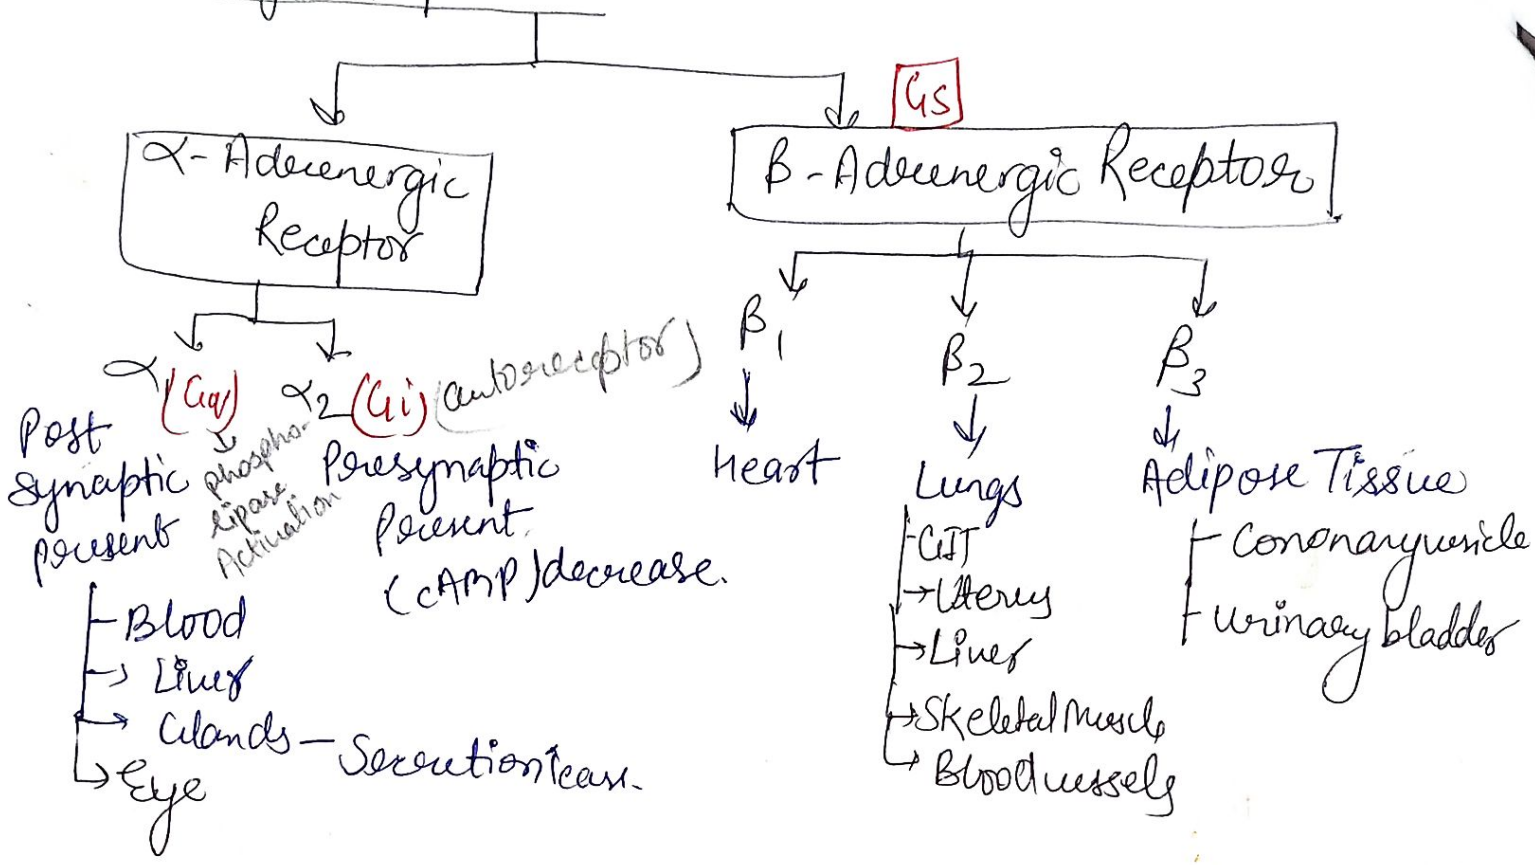 Gs
α-Adrenergic
Receptor
β-Adrenergic Receptor
α (Gq)
α2 (Gi) (autoreceptor)
Post
synaptic
present
phospho-
lipase
Activation
Presynaptic
Present.
(cAMP) decrease.
Blood
Liver
Glands – Secretion
Eye
β1
Heart
β2
Lungs
GIT
Uterus
Liver
Skeletal Muscle
Blood vessels
β3
Adipose Tissue
Urinary bladder